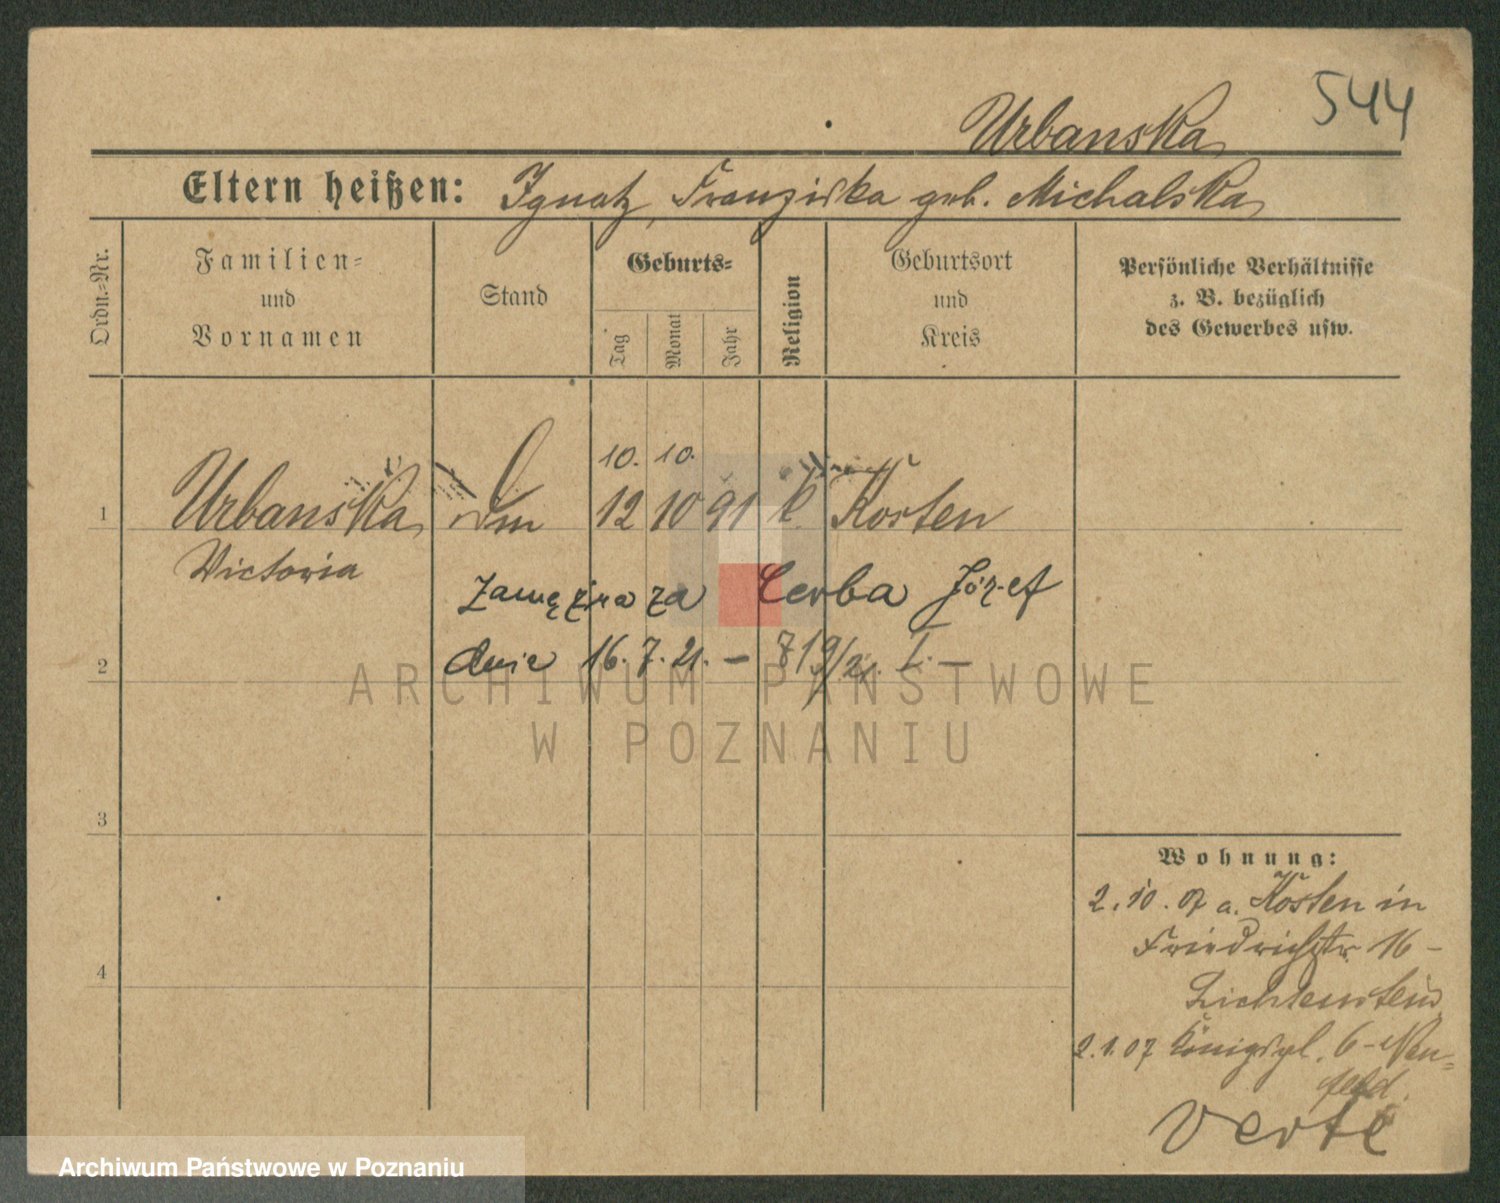 544
Urbanska
Eltern heißen: Ignatz, Franziska geb. Michalska
Ordn.-Nr.
Familien-
und
Vornamen
Stand
Geburts-
Tag
Monat
Jahr
Religion
Geburtsort
und
Kreis
Persönliche Verhältnisse
z. B. bezüglich
des Gewerbes usw.
10. 10.
1 Urbanska 12 10 91 k. Kosten
Victoria
zamężna za Cerba Józef
2 dnia 16. 7. 21. – 819/21. I. –
ARCHIWUM PAŃSTWOWE
W POZNANIU
3
4
Wohnung:
2. 10. 07 a. Kosten in
Friedrichstr. 16 –
Lichtenstein
2.1.07 Königspl. 6 – Neu-
feld.
Verte
Archiwum Państwowe w Poznaniu